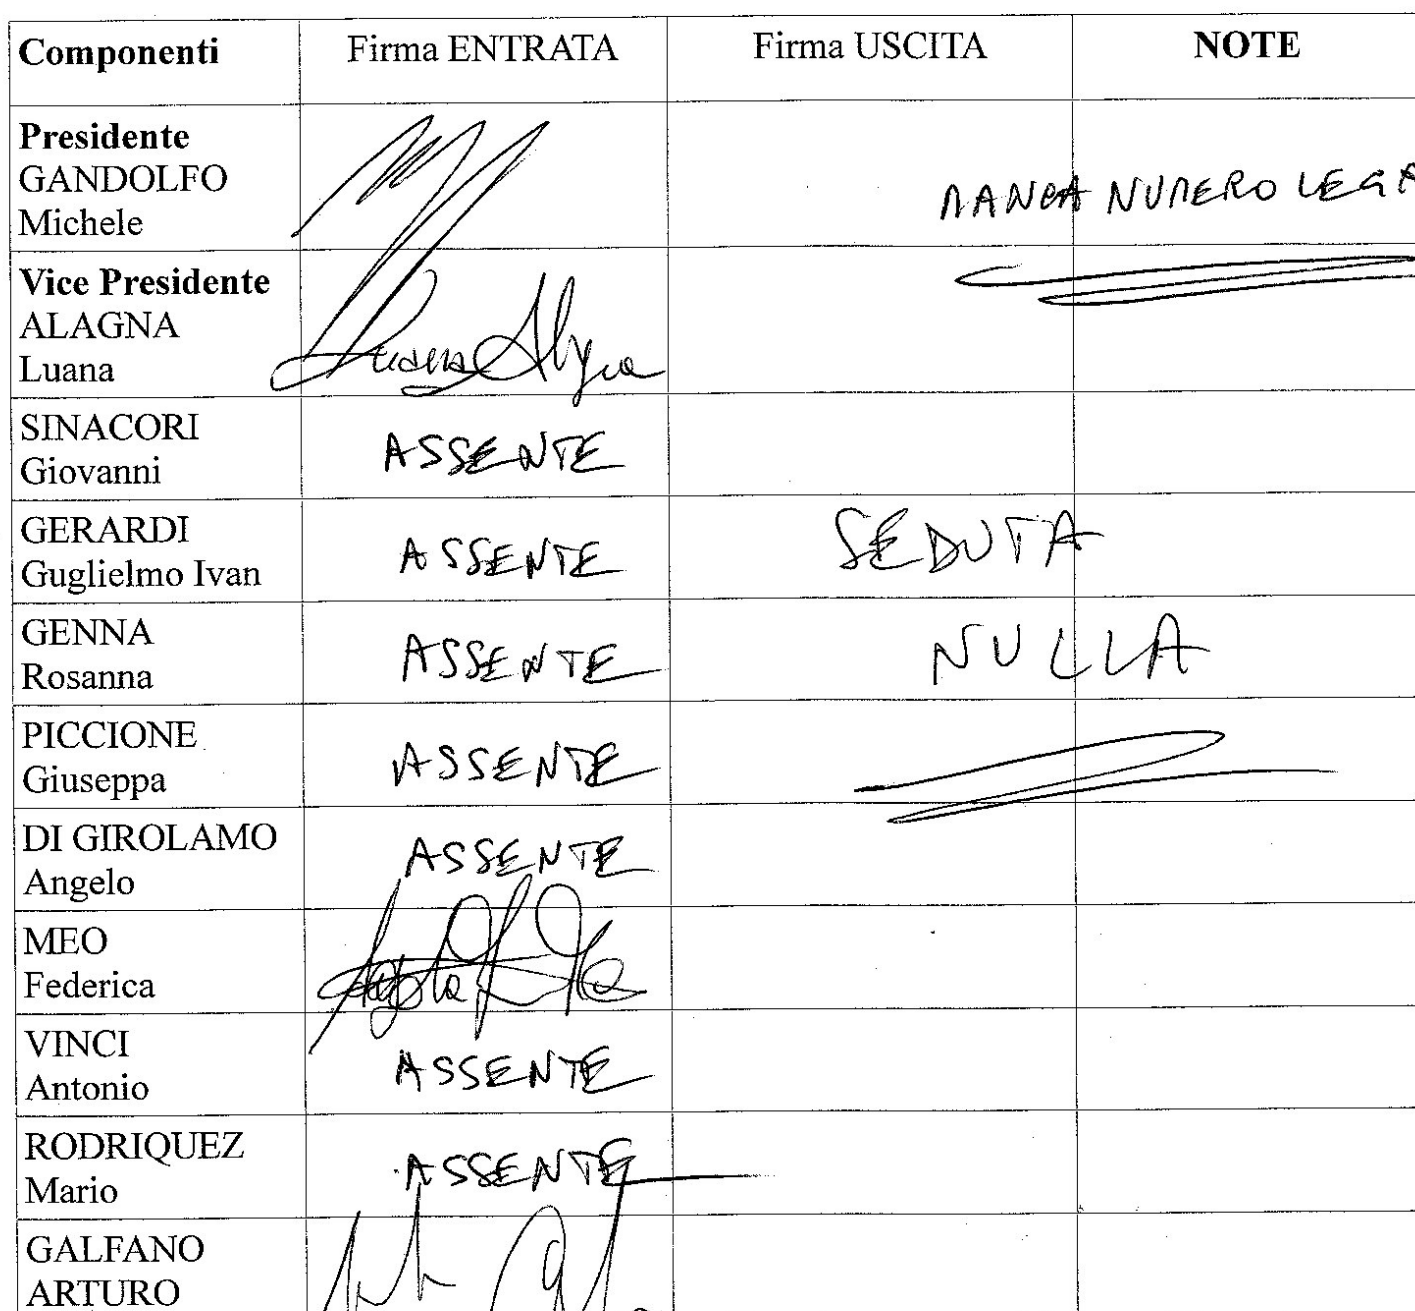 Componenti Firma ENTRATA Firma USCITA NOTE
Presidente
GANDOLFO
Michele
MANCA NUMERO LEGA
Vice Presidente
ALAGNA
Luana
Luana Alagna
SINACORI
Giovanni
ASSENTE
GERARDI
Guglielmo Ivan
ASSENTE
SEDUTA
GENNA
Rosanna
ASSENTE
NULLA
PICCIONE
Giuseppa
ASSENTE
DI GIROLAMO
Angelo
ASSENTE
MEO
Federica
VINCI
Antonio
ASSENTE
RODRIQUEZ
Mario
ASSENTE
GALFANO
ARTURO